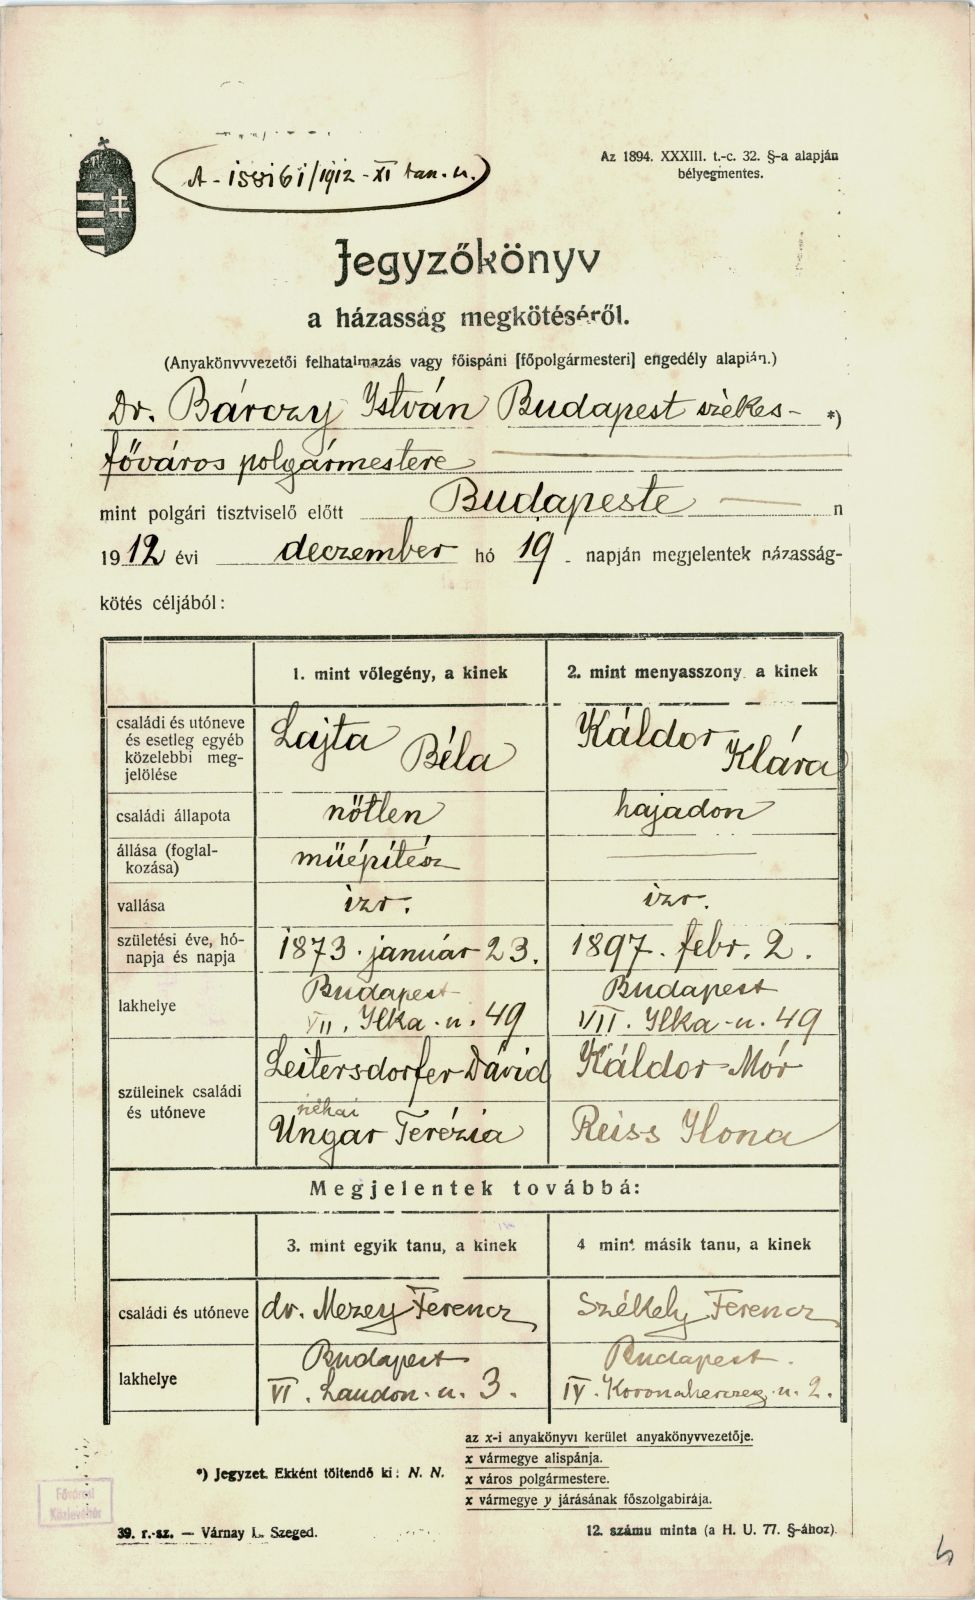 Az 1894. XXXIII. t.-c. 32. §-a alapján
bélyegmentes.
/1912-XI tan. u.
Jegyzőkönyv
a házasság megkötéséről.
(Anyakönyvvezetői felhatalmazás vagy főispáni [főpolgármesteri] engedély alapján.)
Dr. Bárczy István Budapest székes- *)
főváros polgármestere
mint polgári tisztviselő előtt Budapeste n
1912 évi deczember hó 19 napján megjelentek házasság-
kötés céljából:
1. mint vőlegény, a kinek
2. mint menyasszony, a kinek
családi és utóneve
és esetleg egyéb
közelebbi meg-
jelölése
Lajta Béla
Káldor Klára
családi állapota
nőtlen
hajadon
állása (foglal-
kozása)
műépítész
vallása
izr.
izr.
születési éve, hó-
napja és napja
1873. január 23.
1897. febr. 2.
lakhelye
Budapest
VII. Ilka-u. 49
Budapest
VII. Ilka-u. 49
szüleinek családi
és utóneve
Leitersdorfer Dávid
Káldor Mór
néhai
Ungar Terézia
Reiss Ilona
Megjelentek továbbá:
3. mint egyik tanu, a kinek
4 mint másik tanu, a kinek
családi és utóneve
dr. Mezey Ferencz
Székely Ferencz
lakhelye
Budapest
VI. Laudon-u. 3.
Budapest.
IV. Koronaherczeg-u. 2.
*) Jegyzet. Ekként töltendő ki: N. N.
az x-i anyakönyvi kerület anyakönyvvezetője.
x vármegye alispánja.
x város polgármestere.
x vármegye y járásának főszolgabirája.
Fővárosi
Közlevéltár
39. r.-sz. — Várnay L. Szeged.
12. számu minta (a H. U. 77. §-ához).